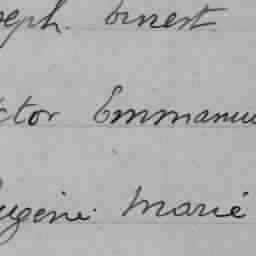 seph. Ernest
ctor Emmanu
ugène. Marie